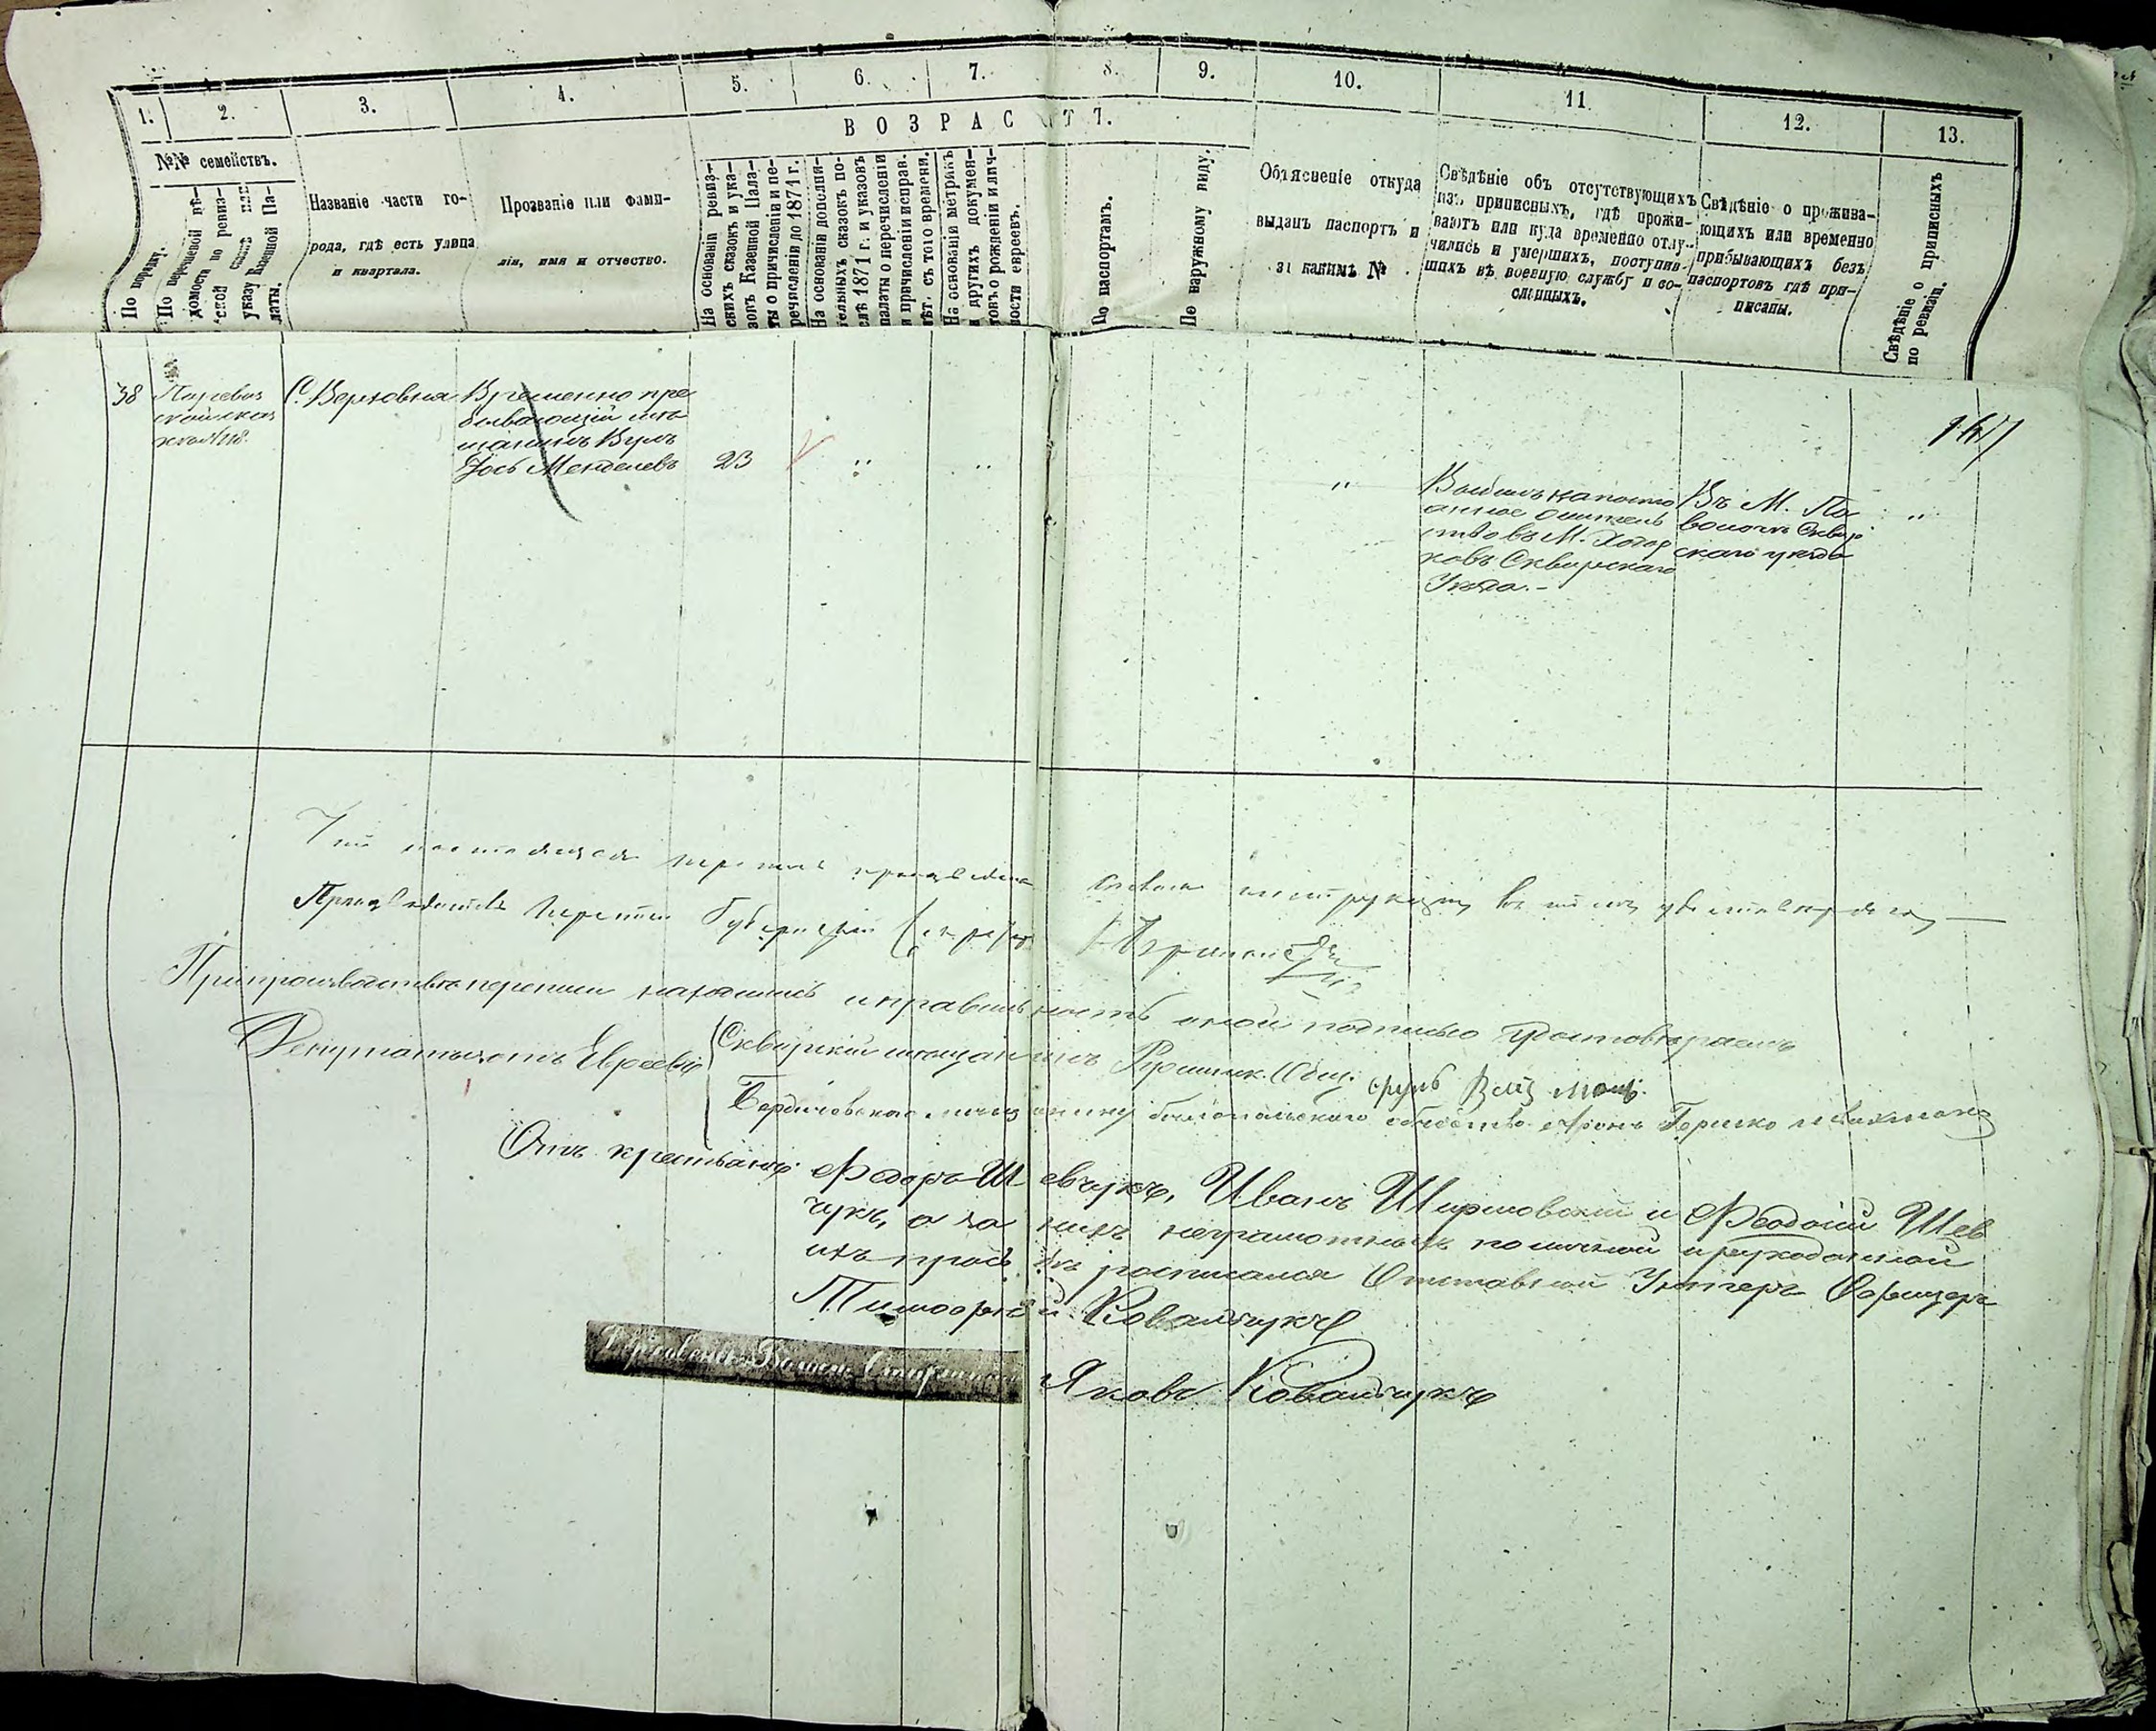 1. 2. 3. 4. 5. 6. 7. 8. 9. 10. 11. 12. 13.
ВОЗРАСТЪ.
№№ семействъ.
По порядку.
По перечневой вѣ-
домости по ревиз-
ской сказкѣ или
указу Казенной Па-
латы.
Названіе части го-
рода, гдѣ есть улица
и квартала.
Прозваніе или фами-
лія, имя и отчество.
На основаніи ревиз-
скихъ сказокъ и ука-
зовъ Казенной Пала-
ты о причисленіи и пе-
речисленіи до 1871 г.
На основаніи дополни-
тельныхъ сказокъ по-
слѣ 1871 г. и указовъ
палаты о перечисленіи
и причисленіи исправ.
лѣт. съ того времени.
На основаніи метрикъ
и другихъ докумен-
товъ о рожденіи и лич-
ности евреевъ.
По паспортамъ.
По наружному виду.
Объясненіе откуда
выданъ паспортъ и
за какимъ №
Свѣдѣніе объ отсутствующихъ
изъ приписныхъ, гдѣ прожи-
ваютъ или куда временно отлу-
чились и умершихъ, поступив-
шихъ въ военную службу и со-
сланныхъ.
Свѣдѣніе о прожива-
ющихъ или временно
прибывающихъ безъ
паспортовъ гдѣ при-
писаны.
Свѣдѣніе о приписныхъ
по ревизіи.
38
С. Верховня
Временно пре
бывающій мѣ
щанинъ
Іось Менделевъ
23
Выбылъ на посто
янное жительс
тво въ М. Ходор
ковъ Сквирскаго
Уѣзда.-
Въ М. Па
волочи Сквир
скаго уѣзда
Что настоящая перепись произведена согласно инструкціи, въ томъ удостовѣряю
При производствѣ переписи находились и правильность оной подписью удостовѣряемъ
Депутаты отъ Евреевъ
Сквирскій мещанинъ
Бердичевскаго общества Аронъ Гершко
Отъ крестьянъ: Федоръ Шевчукъ, Иванъ и Феодосій Шев
чукъ, а за нихъ неграмотныхъ по личной и рукоданной
ихъ прозбѣ росписался Отставной Унтеръ Офицеръ
Тимофей Ковальчукъ
Волост. Старшина Яковъ Ковальчукъ